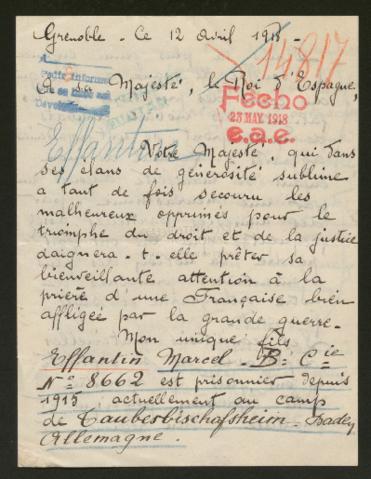 Grenoble - Ce 12 Avril 1918 -
14817
A sa Majesté, le Roi d'Espagne,
Fecho
23 MAY. 1918
e.a.e.
Effantin
Votre Majesté, qui dans
ses élans de générosité sublime
a tant de fois secouru les
malheureux opprimés pour le
triomphe du droit et de la justice
daignera-t-elle prêter sa
bienveillante attention à la
prière d'une Française bien
affligée par la grande guerre.
Mon unique fils
Effantin Marcel - B= Cie
No= 8662 est prisonnier depuis
1915, actuellement au camp
de Tauberbischofsheim - Baden
Allemagne.